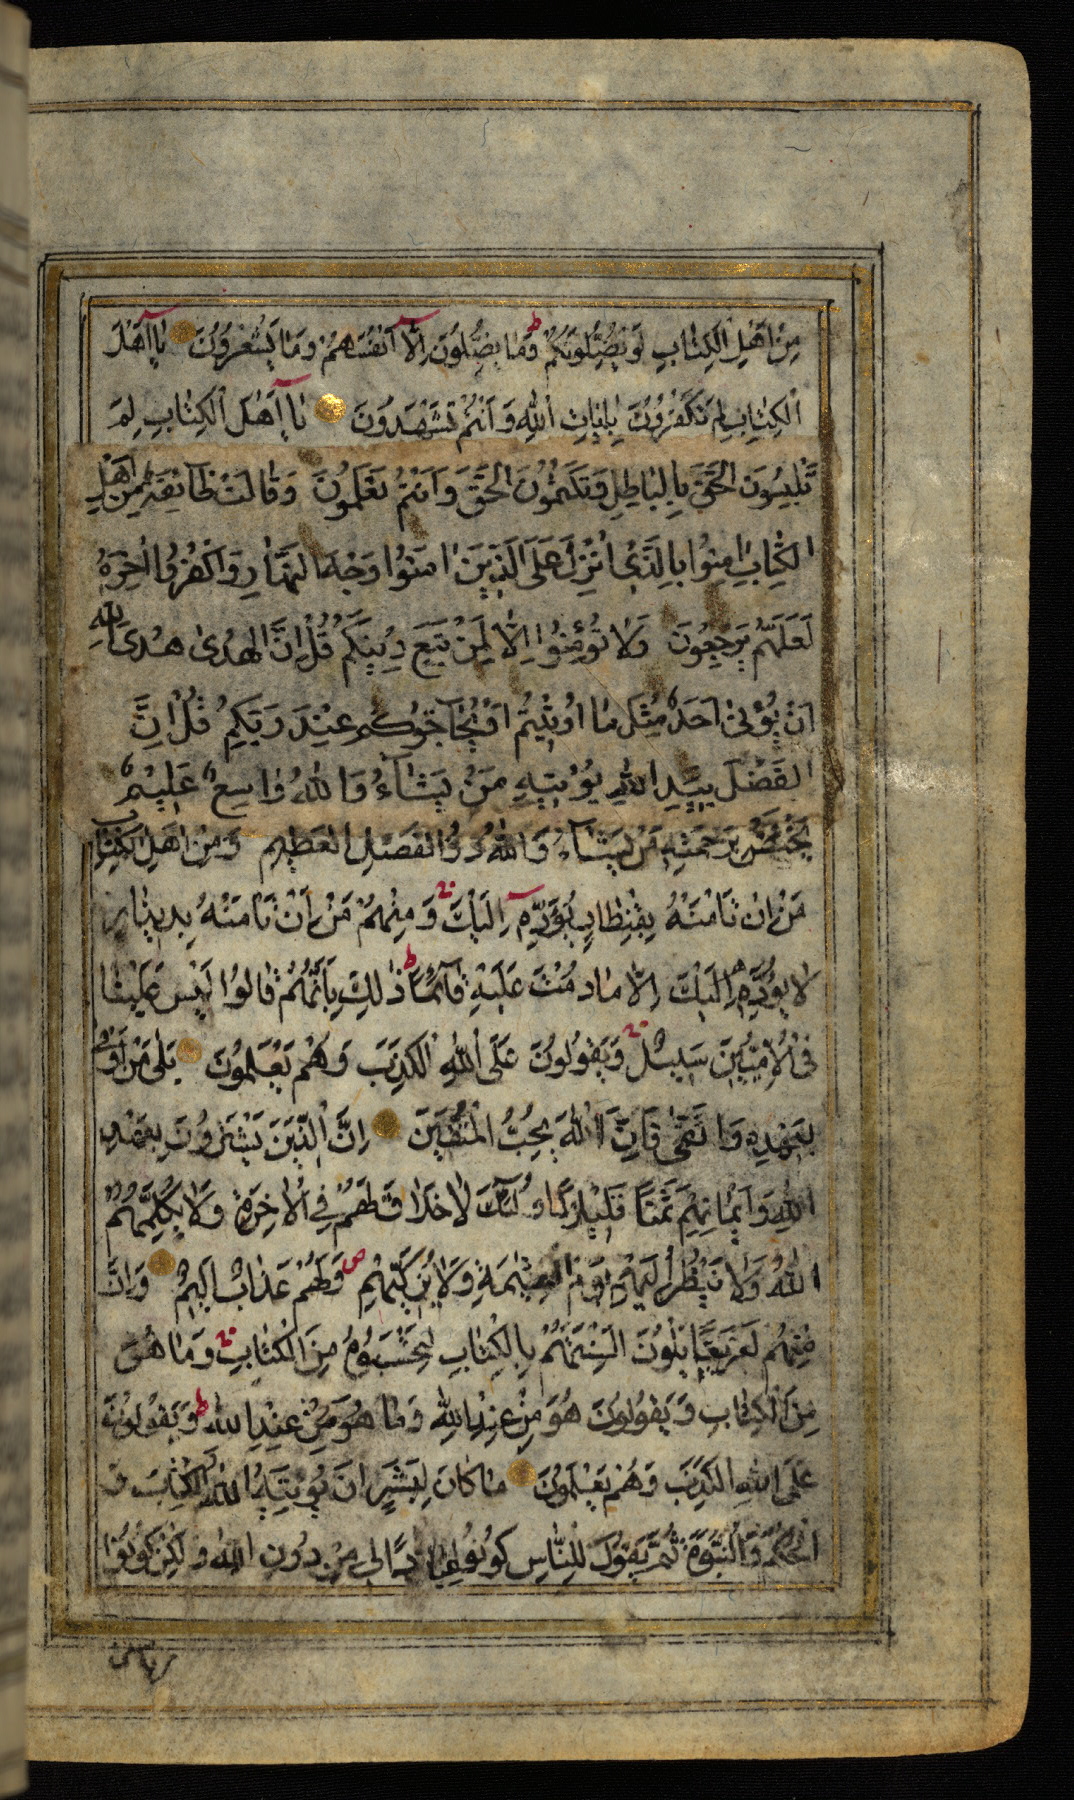 مِنْ اَهْلِ الْكِتٰابِ لَوْ يُضِلُّونَكُمْ ط وَمٰا يُضِلُّونَ اِلّٰٓا اَنْفُسَهُمْ وَمٰا يَشْعُرُونَ يٰٓا اَهْلَ
الْكِتٰابِ لِمَ تَكْفُرُونَ بِاٰيٰاتِ اللّٰهِ وَ اَنْتُمْ تَشْهَدُونَ يٰٓا اَهْلَ الْكِتٰابِ لِمَ
تَلْبِسُونَ الْحَقَّ بِالْبٰاطِلِ وَتَكْتُمُونَ الْحَقَّ وَ اَنْتُمْ تَعْلَمُونَ وَقٰالَتْ طٰٓائِفَةٌ مِنْ اَهْلِ
الْكِتٰابِ اٰمِنُوا بِالَّذٖى اُنْزِلَ عَلَى الَّذٖينَ اٰمَنُوا وَجْهَ النَّهٰارِ وَاكْفُرُوا اٰخِرَهُ
لَعَلَّهُمْ يَرْجِعُونَ وَلٰا تُؤْمِنُوا اِلّٰا لِمَنْ تَبِعَ دٖينَكُمْ قُلْ اِنَّ الْهُدٰى هُدَى اللّٰهِ
اَنْ يُؤْتٰى اَحَدٌ مِثْلَ مٰا اُوتٖيتُمْ اَوْ يُحٰٓاجُّوكُمْ عِنْدَ رَبِّكُمْ قُلْ اِنَّ
الْفَضْلَ بِيَدِ اللّٰهِ يُؤْتٖيهِ مَنْ يَشٰٓاءُ وَاللّٰهُ وٰاسِعٌ عَلٖيمٌ
يَخْتَصُّ بِرَحْمَتِهٖ مَنْ يَشٰٓاءُ وَاللّٰهُ ذُو الْفَضْلِ الْعَظٖيمِ وَمِنْ اَهْلِ الْكِتٰابِ
مَنْ اِنْ تَاْمَنْهُ بِقِنْطٰارٍ يُؤَدِّهٖٓ اِلَيْكَ وَمِنْهُمْ مَنْ اِنْ تَاْمَنْهُ بِدٖينٰارٍ
لٰا يُؤَدِّهٖ اِلَيْكَ اِلّٰا مٰا دُمْتَ عَلَيْهِ قٰٓائِمًا ط ذٰلِكَ بِاَنَّهُمْ قٰالُوا لَيْسَ عَلَيْنٰا
فِى الْاُمِّيّٖينَ سَبٖيلٌ وَيَقُولُونَ عَلَى اللّٰهِ الْكَذِبَ وَهُمْ يَعْلَمُونَ بَلٰى مَنْ اَوْفٰى
بِعَهْدِهٖ وَاتَّقٰى فَاِنَّ اللّٰهَ يُحِبُّ الْمُتَّقٖينَ اِنَّ الَّذٖينَ يَشْتَرُونَ بِعَهْدِ
اللّٰهِ وَ اَيْمٰانِهِمْ ثَمَنًا قَلٖيلًا اُولٰٓئِكَ لٰا خَلٰاقَ لَهُمْ فِى الْاٰخِرَةِ وَلٰا يُكَلِّمُهُمُ
اللّٰهُ وَلٰا يَنْظُرُ اِلَيْهِمْ يَوْمَ الْقِيٰمَةِ وَلٰا يُزَكّٖيهِمْ ص وَلَهُمْ عَذٰابٌ اَلٖيمٌ وَاِنَّ
مِنْهُمْ لَفَرٖيقًا يَلْوُنَ اَلْسِنَتَهُمْ بِالْكِتٰابِ لِتَحْسَبُوهُ مِنَ الْكِتٰابِ وَمٰا هُوَ
مِنَ الْكِتٰابِ وَيَقُولُونَ هُوَ مِنْ عِنْدِ اللّٰهِ وَمٰا هُوَ مِنْ عِنْدِ اللّٰهِ ط وَيَقُولُونَ
عَلَى اللّٰهِ الْكَذِبَ وَهُمْ يَعْلَمُونَ مٰا كٰانَ لِبَشَرٍ اَنْ يُؤْتِيَهُ اللّٰهُ الْكِتٰبَ وَ
الْحُكْمَ وَالنُّبُوَّةَ ثُمَّ يَقُولَ لِلنّٰاسِ كُونُوا عِبٰادًا لٖى مِنْ دُونِ اللّٰهِ وَلٰكِنْ كُونُوا